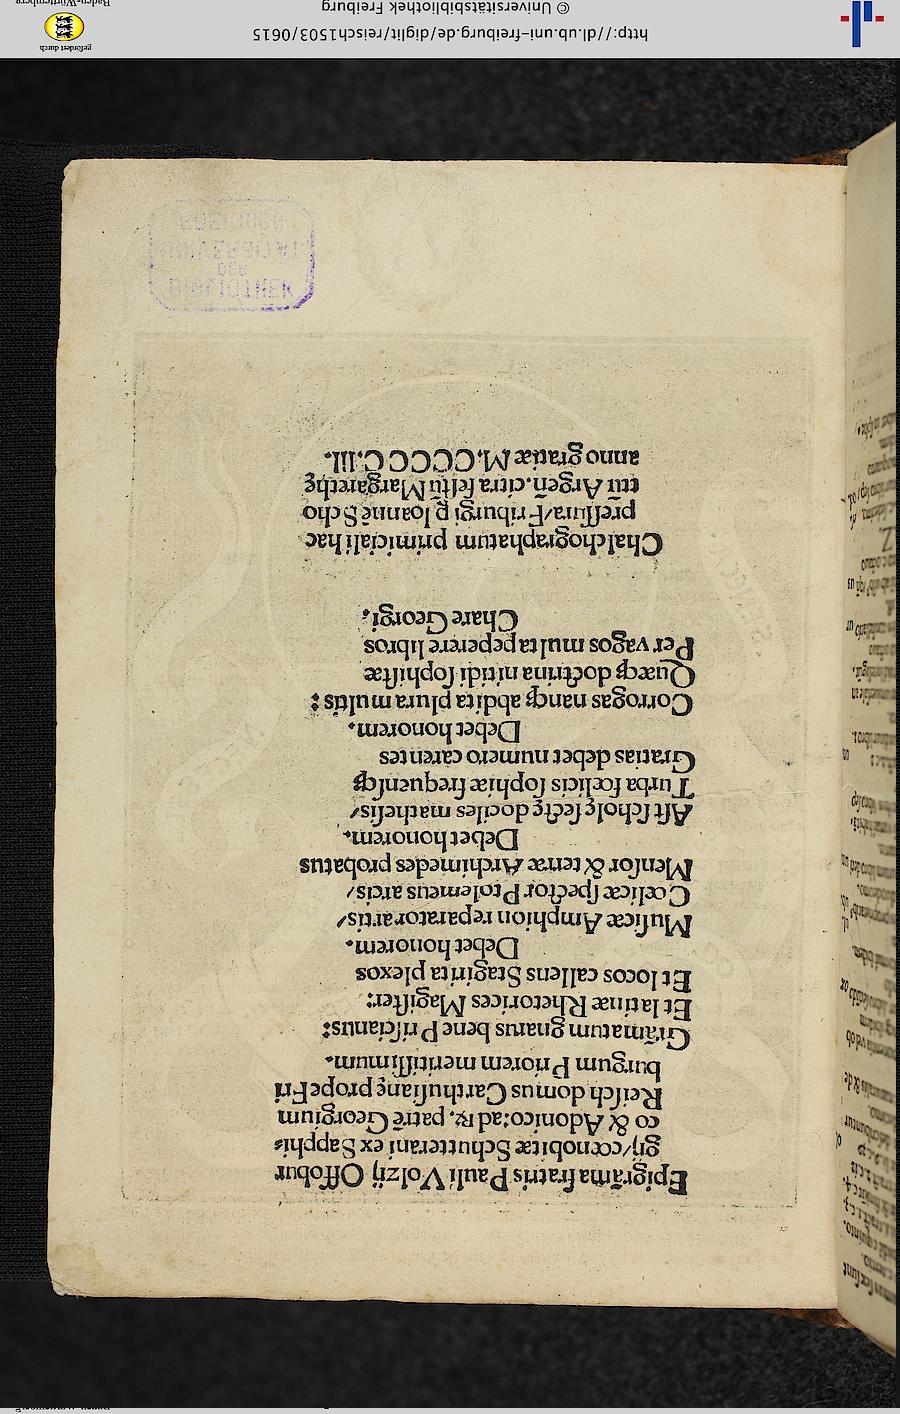 Epigrāma fratris Pauli Volzij Offobur
gij/cœnobitæ Schutterani ex Sapphi
co & Adonico: ad ꝶ. patrē Georgium
Reiſch domus Carthuſianę prope Fri
burgum Priorem meritiſſimum.
Grāmatum gnarus bene Priſcianus:
Et latinæ Rhetorices Magiſter:
Et locos callens Stagirita plexos
Debet honorem.
Muſicæ Amphion reparator artis/
Cœlicæ ſpector Ptolemeus arcis/
Menſor & terræ Archimedes probatus
Debet honorem.
Aſt ſcholę ſectę dociles matheſis/
Turba fœlicis ſophiæ frequenſqꝫ
Gratias debet numero carentes
Debet honorem.
Corrogas nanqꝫ abdita plura multis:
Quæqꝫ doctrina nitidi ſophiſtæ
Per vagos multa peperere libros
Chare Georgi.
Chalchographatum primiciali hac
preſſura/Friburgi ꝑ Ioannē Scho
ttū Argeñ. citra feſtū Margarethę
anno gratiæ M.CCCCC.III.
BIBLIOTHEK
DER
UNIVERSITÄT
FREIBURG
http://dl.ub.uni-freiburg.de/diglit/reisch1503/0615
© Universitätsbibliothek Freiburg
gefördert durch
Baden-Württemberg